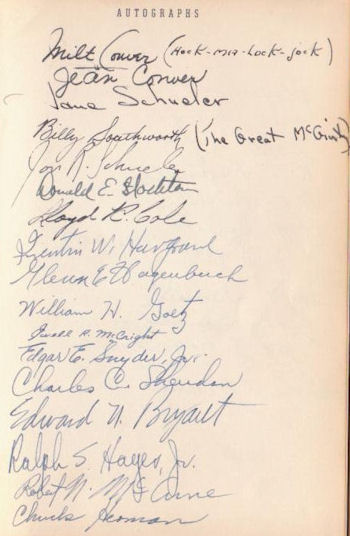 AUTOGRAPHS
Milt Conver (Hock-mia-Lock-jock)
Jean Conver
Jane Schueler
Billy Southworth (The Great McGinty)
Jos R. Schueler
Donald E. Stockton
Lloyd R. Cole
Quentin W. Hargrand
Glenn E Hagenbuch
William H. Goetz
R. McCright
Edgar E. Snyder, Jr.
Charles C. Sheridan
Edward N. Bryant
Ralph S. Hayes, Jr.
Robert N. McCune
Chuck